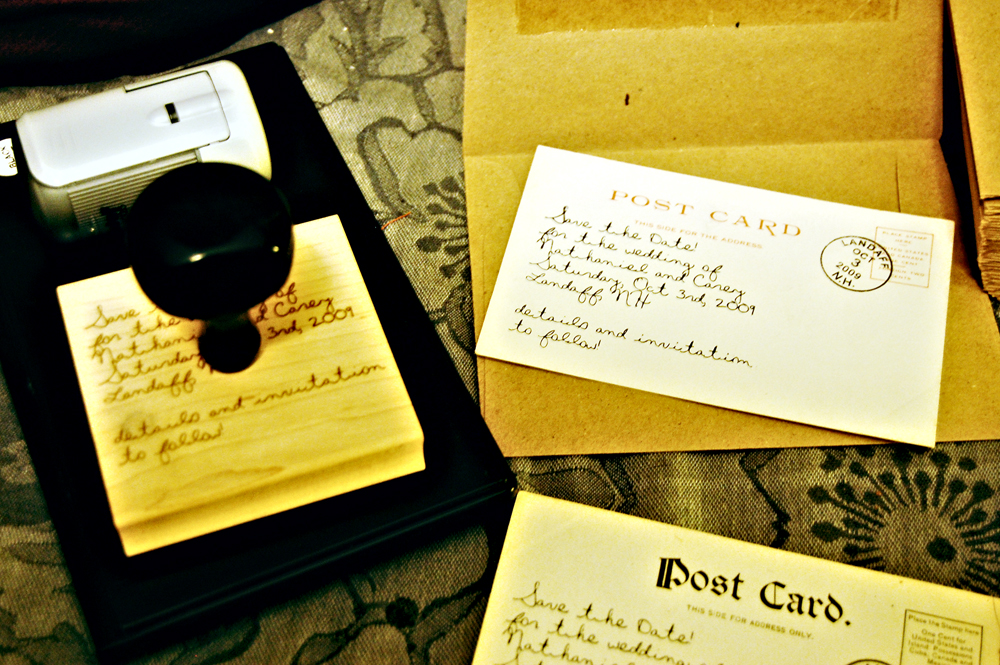 Save the
for the
Nathaniel and Carey
Saturday 3rd, 2009
Landaff
details and invitation
to follow!
POST CARD
THIS SIDE FOR THE ADDRESS
Save the Date!
for the wedding of
Nathaniel and Carey
Saturday, Oct 3rd, 2009
Landaff NH
details and invitation
to follow!
LANDAFF
OCT
3
2009
N.H.
PLACE STAMP
HERE
Post Card.
THIS SIDE FOR ADDRESS ONLY.
Save the Date!
for the wedding
Nathaniel
Place the Stamp here
One Cent for
United States and
Island Possessions
Cuba, Canada